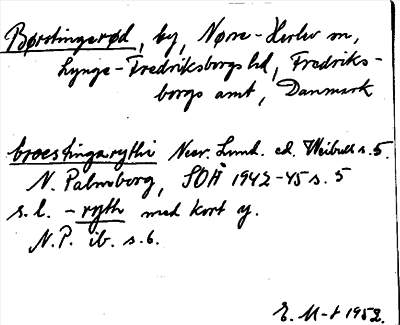 Børstingerød, by, Nørre-Herlev sn,
Lynge-Fredriksborgs hd, Fredriks-
borgs amt, Danmark
broestingarythi Necr. Lund. ed. Weibull s. 5.
N. Palmborg, SOÅ 1942-45 s. 5
s.l. - ryth med kort y.
N.P. ib. s. 6.
E. M-t 1952.